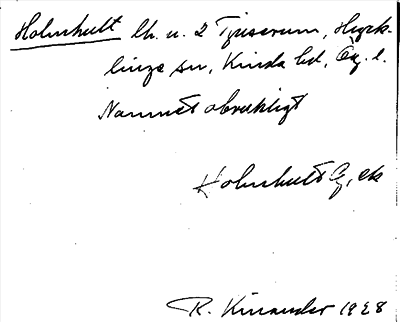 Holmhult lh. u. 2 Tjuserum, Hyck-
linge sn, Kinda hd, Ög. l.
Namnet obrukligt
Holmhult G, ek
R. Kinander 1928